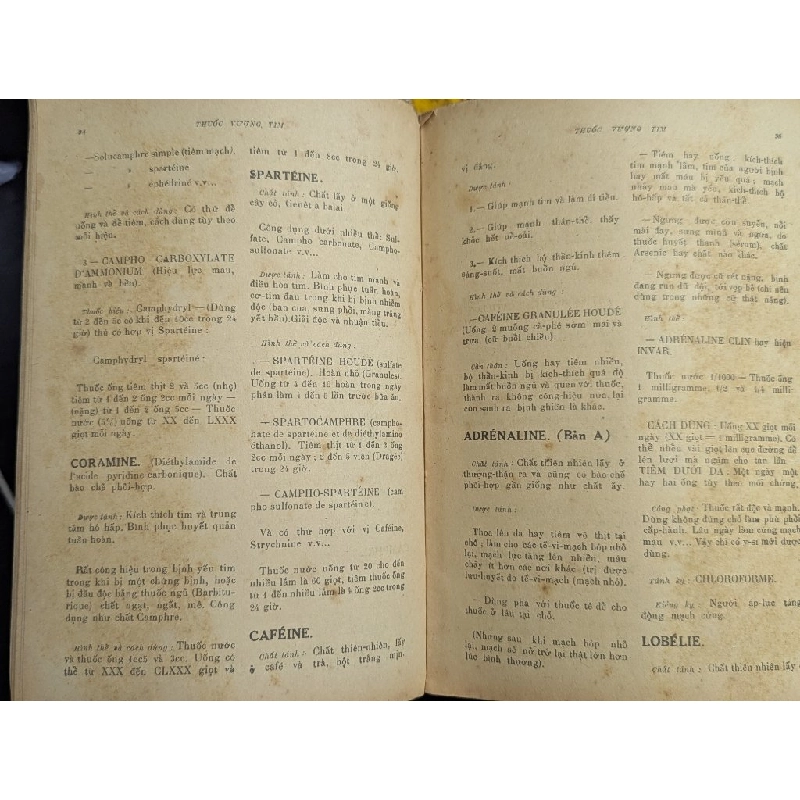 94
THUỐC VƯỢNG TIM
—Solucamphre simple (tiêm mạch).
— » spartéine
— » éphédrine v.v...
Hình thế và cách dùng: Có thứ để
uống và để tiêm, cách dùng tùy theo
mỗi hiệu.
2 — CAMPHO CARBOXYLATE
D'AMMONIUM (Hiệu lực mau,
mạnh và bền).
Thuốc hiệu: Camphydryl — (Dùng
từ 2 đến 5c có khi đến 10cc trong 24
giờ) thứ có hợp vị Spartéine :
Camphydryl spartéine :
Thuốc ống tiêm thịt 2 và 5cc (nhẹ)
tiêm từ 1 đến 2 ống 2cc mỗi ngày —
(nặng) từ 1 đến 2 ống 5cc — Thuốc
nước uống từ XX đến LXXX
giọt mỗi ngày.
CORAMINE. (Diéthylamide de
l'acide pyridino-carbonique). Chất
bào chế phối-hợp.
Dược tánh: Kích thích tim và trung
tâm hô hấp. Bình phục huyết quản
tuần hoàn.
Rất công hiệu trong bịnh yếu tim
trong khi bị một chứng bịnh, hoặc
bị đầu độc bằng thuốc ngủ (Barbitu-
rique) chết ngạt, ngất, mê. Công
dụng như chất Camphre.
Hình thế và cách dùng : Thuốc nước
và thuốc ống 1cc5 và 5cc. Uống có
thể từ XXX đến CLXXX giọt và
tiêm từ 1 đến 5cc trong 24 giờ.
SPARTÉINE.
Chất tánh : Chất lấy ở một giống
cây cỏ, Genêt à balai.
Công dụng dưới nhiều thể: Sul-
fate, Campho carbonate, Campho-
sulfonate v.v...
Dược tánh: Làm cho tim mạnh và
điều hòa tim. Bình phục tuần hoàn,
cơ-tim đau trong khi bị bịnh nhiễm
độc (ban cua, sưng phổi, màng tráng
yết hầu). Giải độc và nhuận tiểu.
Hình thế và cách dùng :
— SPARTÉINE HOUDÉ (sulfate
de spartéine). Hoàn chỗ (Granules).
Uống từ 4 đến 10 hoàn trong ngày
phân làm 4 đến 6 lần trước bữa ăn.
— SPARTOCAMPHRE (campho-
nate de spartéine et de diéthylamino
éthanol). Tiêm thịt từ 1 đến 2 ống
2cc mỗi ngày ; 1 đến 6 viên (Drogés)
trong 24 giờ.
— CAMPHO-SPARTÉINE (cam
pho sulfonate de spartéine).
Và có thứ hợp với vị Caféine,
Strychnine v.v...
Thuốc nước uống từ 20 cho đến
nhiều lắm là 60 giọt, tiêm thuốc ống
từ 1 đến nhiều lắm là 6 ống 2cc trong
24 giờ.
CAFÉINE.
Chất tánh : Chất thiên-nhiên, lấy
ở café và trà, bột trắng mịn,
THUỐC VƯỢNG TIM
95
vị đắng.
Dược tánh :
1.— Giúp mạnh tim và làm đi tiểu.
2.— Giúp mạnh thân-thể thấy
khỏe hết mê-mỏi.
3.— Kích thích bộ thần-kinh thêm
sáng-suốt, mất buồn ngủ.
Hình thế và cách dùng :
—CAFÉINE GRANULÉE HOUDÉ
(Uống 2 muỗng cà-phê sớm mai và
trưa (cữ buổi chiều)
Cần hiểu : Uống hay tiêm nhiều,
bộ thần-kinh bị kích-thích quá độ
làm mất buồn ngủ và quen với thuốc,
thành ra không công-hiệu nữa, lại
còn sanh ra bịnh ghiền là khác.
ADRÉNALINE. (Bản A)
Chất tánh : Chất thiên nhiên lấy ở
thượng-thận ra và cũng có bào chế
phối-hợp gần giống như chất ấy.
Dược tánh :
Thoa lên da hay tiêm vô thịt tại
chỗ ; làm cho các tế-vi-mạch bóp nhỏ
lại, mạch lực tăng lên nhiều, máu
chảy ít hơn các nơi khác (trị) được
lưu-huyết do tế-vi-mạch (mạch nhỏ).
— Dùng pha với thuốc tê để cho
thuốc ở lâu tại chỗ.
(Nhưng sau khi mạch bóp nhỏ
lại, mạch sẽ nở trở lại thật lớn hơn
lúc bình thường).
— Tiêm hay uống kích-thích
tim mạnh lắm, tim của người bịnh
hay mất máu bị yếu quá ; mạch
nhảy mau mà yếu, kích-thích bộ
hô-hấp và tất cả thân-thể.
— Ngưng được cơn suyễn, nổi
mài đay, sưng mình và ngứa, do
thuốc huyết thanh (sérum), chất
Arsenic hay chất nào khác.
— Ngưng được cữ rét nặng, bịnh
đang run dữ dội,
cứng trong những
Hình thế :
— ADRÉNALINE CLIN hay hiệu
INVAR.
Thuốc nước 1/1000 — Thuốc ống
1 milligramme, 1/2 và 1/4 milli-
gramme.
CÁCH DÙNG : Uống XX giọt mỗi
ngày (XX giọt = 1 milligramme). Có
thể nhễu vài giọt lên cục đường để
lên lưỡi mà ngậm cho tan lần.
TIÊM DƯỚI DA : Mỗi ngày một
hay hai ống tùy theo mỗi chứng.
Công phạt : Thuốc rất độc và mạnh.
Dùng không đúng chỗ làm phù phổi
cấp-hành. Lâu ngày làm cứng mạch
máu v.v... Vậy chỉ có y-sĩ mới được
dùng.
Tánh kỵ : CHLOROFORME.
Kiêng kỵ : Người áp-lực tăng,
động mạch cứng.
LOBÉLIE.
Chất tánh : Chất thiên nhiên lấy